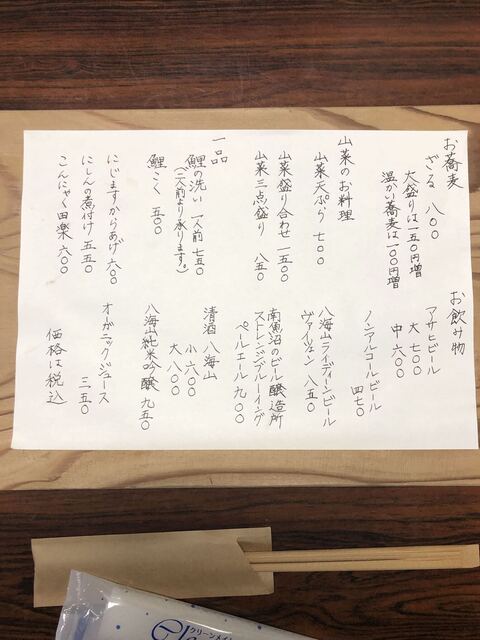 お蕎麦
ざる 八〇〇
大盛りは一五〇円増
温かい蕎麦は一〇〇円増
山菜のお料理
山菜天ぷら 七〇〇
山菜盛り合わせ 一五〇〇
山菜三点盛り 八五〇
一品
鯉の洗い 一人前 七五〇
(二人前より承ります。)
鯉こく 五〇〇
にじますからあげ 六〇〇
にしんの煮付け 五五〇
こんにゃく田楽 六〇〇
お飲み物
アサヒビール
大 七〇〇
中 六〇〇
ノンアルコールビール
四七〇
八海山ライディーンビール
ヴァイツェン 八五〇
南魚沼のビール醸造所
ストレンジブルーイング
ペールエール 九〇〇
清酒 八海山
小 六〇〇
大 八〇〇
八海山純米吟醸 九五〇
オーガニックジュース
三五〇
価格は税込
クリーンメイト